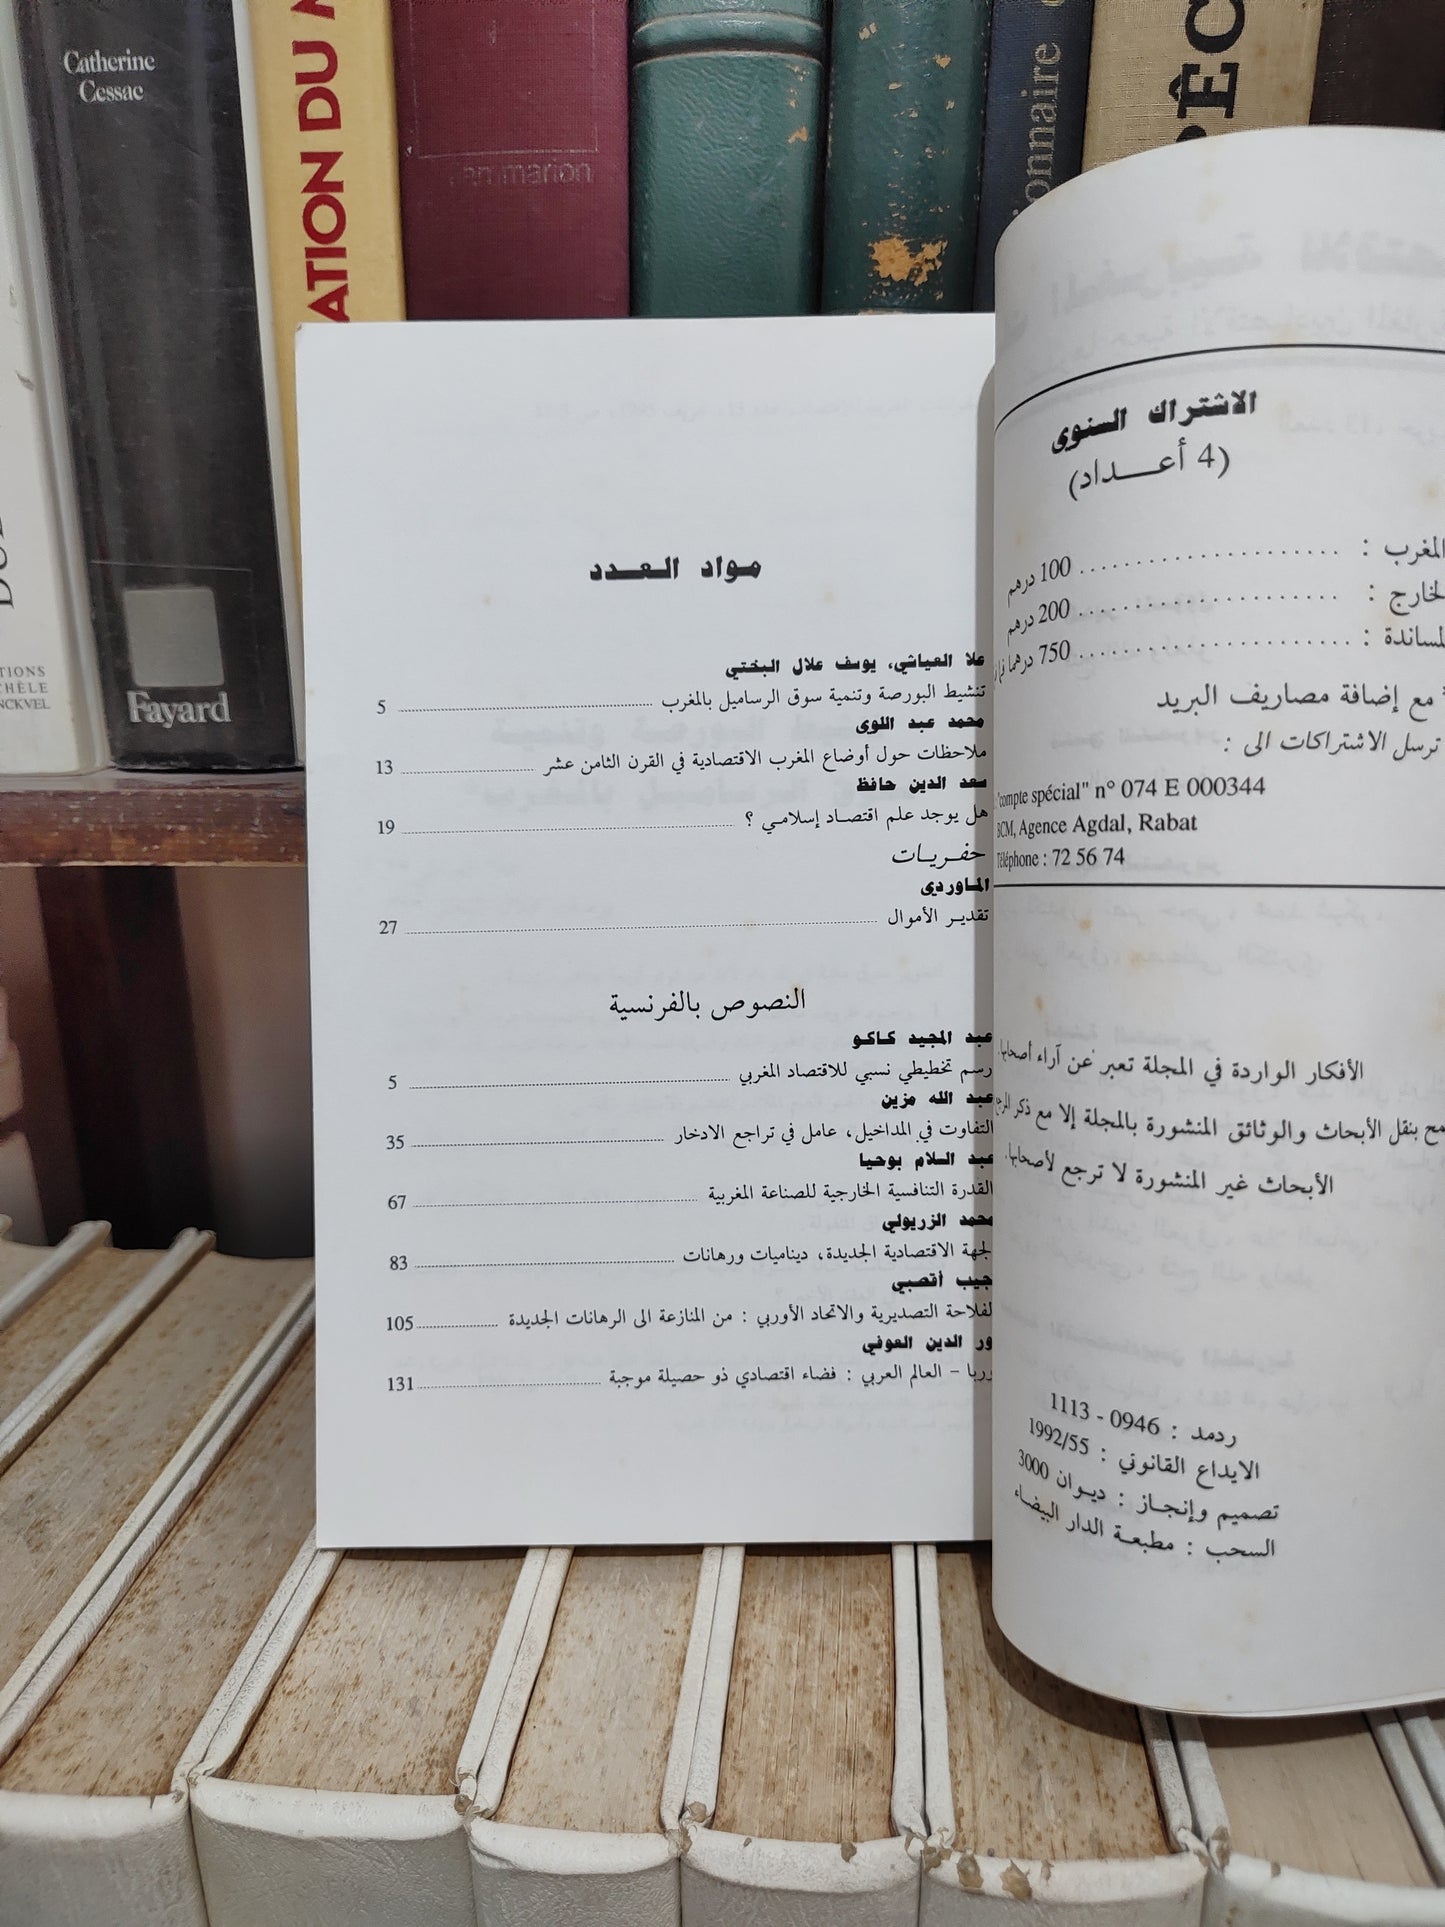 Catherine
Cessac
Fayard
TIONS
CHÈLE
NCKVEL
ATION DU
flammarion
مواد العدد
علا العياشي، يوسف علال البختي
تنشيط البورصة وتنمية سوق الرساميل بالمغرب ........ 5
محمد عبد اللوى
ملاحظات حول أوضاع المغرب الاقتصادية في القرن الثامن عشر ........ 13
سعد الدين حافظ
هل يوجد علم اقتصاد إسلامي ؟ ........ 19
حفريات
الماوردي
تقدير الأموال ........ 27
النصوص بالفرنسية
عبد المجيد كاكو
رسم تخطيطي نسبي للاقتصاد المغربي ........ 5
عبد الله مزين
التفاوت في المداخيل، عامل في تراجع الادخار ........ 35
عبد السلام بوحيا
القدرة التنافسية الخارجية للصناعة المغربية ........ 67
محمد الزريولي
لجهة الاقتصادية الجديدة، ديناميات ورهانات ........ 83
جيب أقصبي
لفلاحة التصديرية والاتحاد الأوربي : من المنازعة الى الرهانات الجديدة ........ 105
ور الدين العوفي
وربا - العالم العربي : فضاء اقتصادي ذو حصيلة موجبة ........ 131
الاشتراك السنوي
(4 أعداد)
المغرب : ........ 100 درهم
لخارج : ........ 200 درهم
لساندة : ........ 750 درهما
مع إضافة مصاريف البريد
ترسل الاشتراكات الى :
"compte spécial" n° 074 E 000344
BCM, Agence Agdal, Rabat
Téléphone : 72 56 74
الأفكار الواردة في المجلة تعبر عن آراء أصحابها.
مح بنقل الأبحاث والوثائق المنشورة بالمجلة إلا مع ذكر المرجع
الأبحاث غير المنشورة لا ترجع لأصحابها.
ردمد : 0946 - 1113
الايداع القانوني : 1992/55
تصميم وإنجاز : ديوان 3000
السحب : مطبعة الدار البيضاء